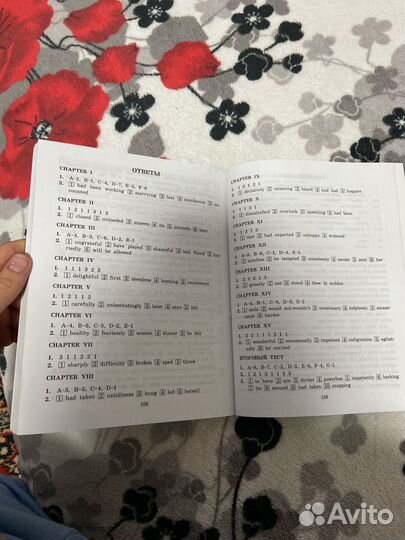 ОТВЕТЫ
CHAPTER I
1. A-2, B-1, C-4, D-7, E-3, F-6
2. 1 had been working 2 marrying 3 last 4 murderous 5
counted
CHAPTER II
1. 1 2 1 1 3 1 2
2. 1 closed 2 unloaded 3 unseen 4 its 5 joyously 6 bent
CHAPTER III
1. A-4, B-3, C-6, D-2, E-1
2. 1 ungrateful 2 have played 3 shameful 4 had found 5
6 will be allowed
CHAPTER IV
1. 1 1 1 3 2 3
2. 1 delightful 2 first 3 sleepless 4 hunting 5 excitement
CHAPTER V
1. 1 2 1 1 2
2. 1 carefully 2 unhesitatingly 3 later 4 says 5 felt
CHAPTER VI
1. A-4, B-6, C-5, D-2, E-1
2. 1 healthy 2 fearlessly 3 women 4 dinner 5 be felt
CHAPTER VII
1. 3 1 1 2 2 1
2. 1 sharply 2 difficulty 3 broken 4 sped 5 threw
CHAPTER VIII
1. A-3, B-5, C-4, D-1
2. 1 had taken 2 untidiness 3 hung 4 led 5 herself
158
CHAPTER IX
1. 1 3 1 2 1
2. 1 decisively 2 unseeing 3 heard 4 had had 5 happier
CHAPTER X
1. 1 3 1
2. 1 dissatisfied 2 overtook 3 upsetting 4 had been
CHAPTER XI
2. 1 met 2 had expected 3 unhappy 4 widened
CHAPTER XII
1. A-3, B-6, C-1, D-4, E-5
2. 1 aimless 2 be tempted 3 noiselessly 4 awoke 5 sent 6 her
CHAPTER XIII
2. 1 greatly 2 sat 3 stood 4 blew 5 sudden
CHAPTER XIV
1. A-4, B-5, C-6, D-3, E-2
2. 1 stole 2 would not/wouldn't 3 missionary 4 helplessly 5
6 harder
CHAPTER XV
1. 2 2 1 1 1 3 2 1 1
2. 1 wonderful 2 occasionally 3 impatient 4 indignation 5
6 be carried
ИТОГОВЫЙ ТЕСТ
1. A-8, B-7, C-2, D-3, E-6, F-4, G-1
2. 1 2 1 3 1 1 2 3
3. 1 to have 2 are 3 dirtier 4 powerless 5 impatiently 6 barking
7 its 8 second 9 had taken 10 snapping
159
Avito